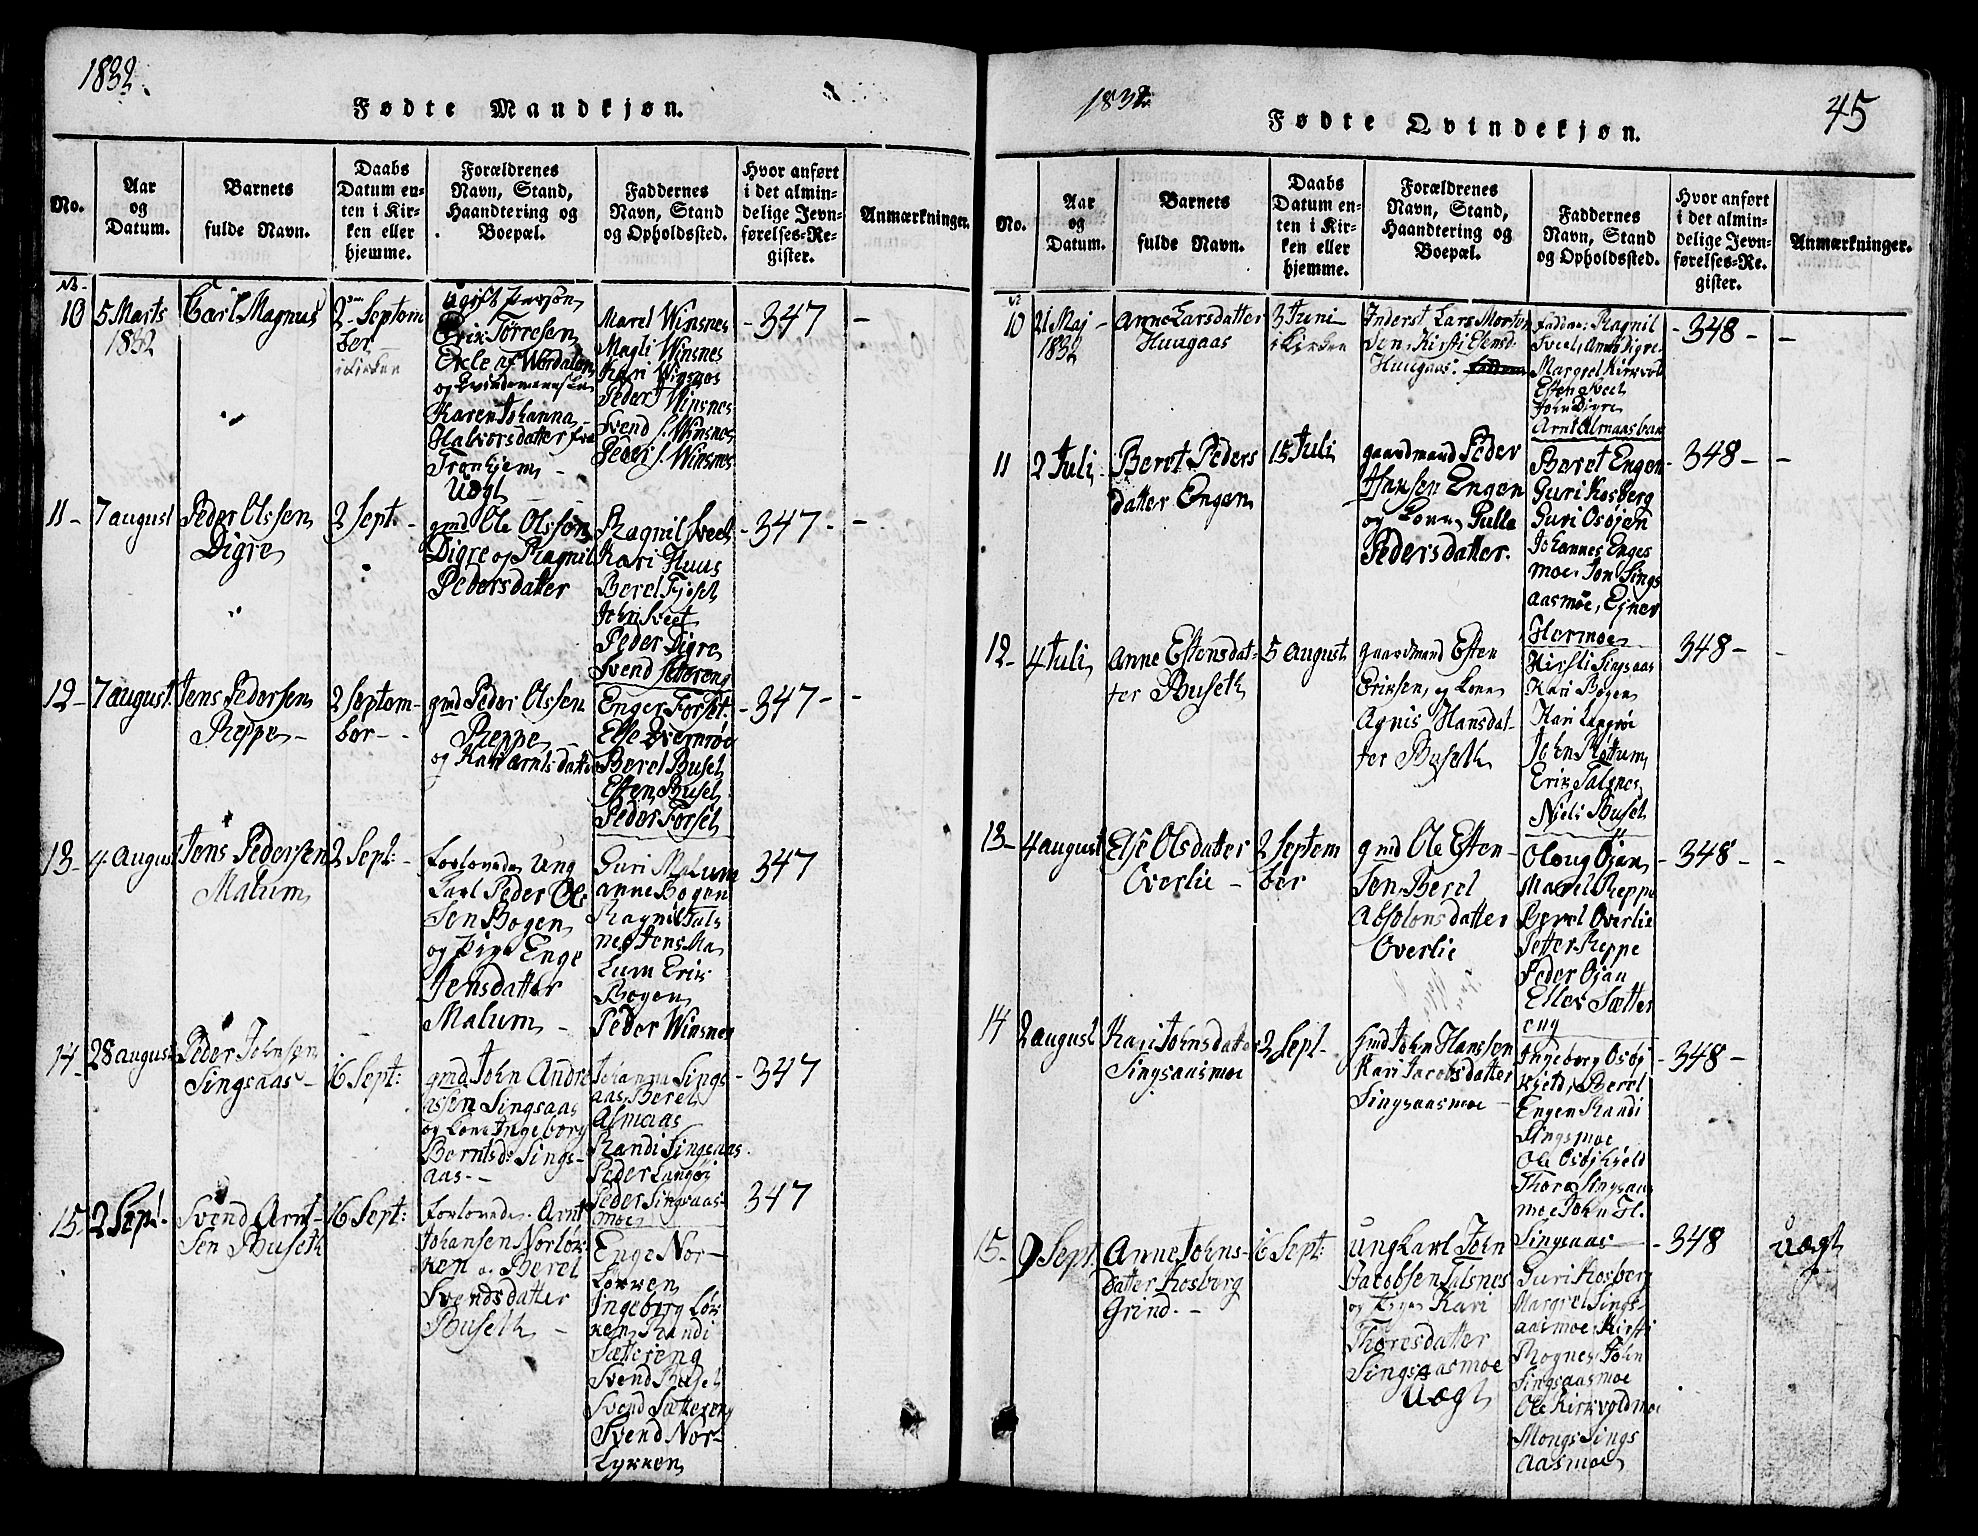 1832.
Fødte Mandkjøn.
No.
Aar
og
Datum.
Barnets
fulde Navn.
Daabs
Datum en-
ten i Kir-
ken eller
hjemme.
Forældrenes
Navn, Stand,
Haandtering og
Boepæl.
Faddernes
Navn, Stand
og Opholdssted.
Hvor anført
i det almin-
delige Jevn-
førelses-Re-
gister.
Anmærkninger.
10
5 Marts
1832
Carl Magnus
2 Septem
ber
i Kirken
Ugift
Erik Torresen
Ekle af Werdalen
og
Karen Johanna
Halvorsdatter fra
Tronhjem
Uægt
Maret Winsnes
Magli Winsnes
Kari Winsnes
Peder Winsnes
Svend J. Winsnes
Peder J. Winsnes
- 347 -
-
11 -
7 august
Peder Olssen
Digre
2 Sept: -
gmd Ole Olssøn
Digre og Ragnil
Pedersdatter
Ragnil Sveet
Kari Huus
Beret Fjøset
John Sveet
Peder Digre
Svend Sættereng
- 347 -
-
12 -
7 august
Jens Pedersen
Reppe -
2 Septem-
ber -
gmd Peder Olssen
Reppe
og Kari Arntsdatter
Enger Forset
Else Overmoe
Beret Buset
Esten Buset
Peder Forset
- 347 -
-
13 -
4 August
Jens Pedersen
Malum
2 Sept: -
forlovede Ung
Karl Peder Ol-
sen Bogen
og Pige Enge
Jensdatter
Malum -
Guri Malum
Anne Bogen
Ragnil Tals
nes Jens Ma
lum Erik
Bogen
Peder Winsnes
347
14 -
28 august
Peder Johnsen
Singsaas -
16 Sept:
gmd John Andre
assen Singsaas
og Kone Ingeborg
Berntsd: Sings-
aas -
Johanna Sings
aas, Beret
Almaas
Randi Singsaas
Peder Langøi
Peder Singsaas-
moe
- 347
15 -
2 Sept. -
Svend Arnt-
sen Buseth
16 Sept:
forlovede Arnt
Johansen Norløk
ken og Beret
Svendsdatter
Buseth -
Enge Nor-
Løkken
Ingeborg Løk
ken, Randi
Sættereng
Svend Buset
Svend Sættereng
Svend Nor-
Lykken
347
1832
45
Fødte Qvindekjøn.
No.
Aar
og
Datum.
Barnets
fulde Navn.
Daabs
Datum en-
ten i Kir-
ken eller
hjemme.
Forældrenes
Navn, Stand,
Haandtering og
Boepæl.
Faddernes
Navn, Stand
og Opholdssted.
Hvor anført
i det almin-
delige Jevn-
førelses-Re-
gister.
Anmærkninger.
10
21 Maj -
1832
Anne Larsdatter
Huugaas
3 Juni
i Kirken
Inderst Lars Morten
sen, Kirsti Estensd.
Huugaas:
Faddere: Ragnil
Sveet, Anne Digre
Margret Kirkvold
Esten Sveet
John Digre
Arnt Almaasbak
- 348 -
-
11
2 Juli -
Beret Peders
datter Engen
15 Juli
gaardmand Peder
Hansen Engen
og Kone Gulle
Pedersdatter.
Beret Engen
Guri Kosberg
Guri Osøien
Johannes Enges
moe, Jon Sings
aasmoe, Ejner
Hermoe
- 348 -
-
12 -
4 Juli
Anne Estensdat-
ter Buseth
5 August
gaardmand Esten
Eriksen, og Kone
Agnis Hansdat-
ter Buseth
Kirsti Singsaas
Kari Bogen
Kari Langøi
John Røttum
Erik Talsnes
Niels Buset
348 -
-
13 -
4 august
Else Olsdatter
Overlie -
2 Septem
ber
gmd Ole Esten-
sen, Beret
Absolonsdatter
Overlie
Oloug Øjan
Maret Reppe
Beret Overlie
Petter Reppe
Peder Øjan
Eller Sætter
eng
- 348 -
-
14
2 august
Kari Johnsdatter
Singsaasmoe
2 Sept -
gmd John Hanssen
Kari Jacobsdatter
Singsaasmoe -
Ingeborg Osøj
kjeld, Beret
Engen Randi
Singsmoe
Ole Osøjkjeld
Thore Singsaas
moe John Ol.
Singsaas
- 348 -
15 -
9 Sept
Anne Johns-
datter Kosberg
Grind. -
16 Sept:
Ung Karl John
Jacobsen Talsnes
og Pige Kari
Thoresdatter
Singsaasmoe
Uægt
Guri Kosberg
Margret Sings-
aasmoe, Kirsti
Rognes, John
Singsaasmoe
Ole Kirkvoldmoe
Mongs Sings
aasmoe
- 348
Uægt